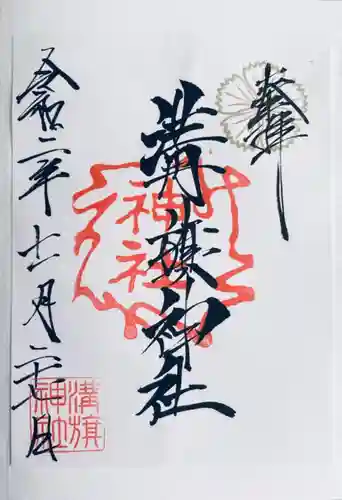 奉拝
溝旗神社
令和二年十一月二十七日
神社
溝旗
神社